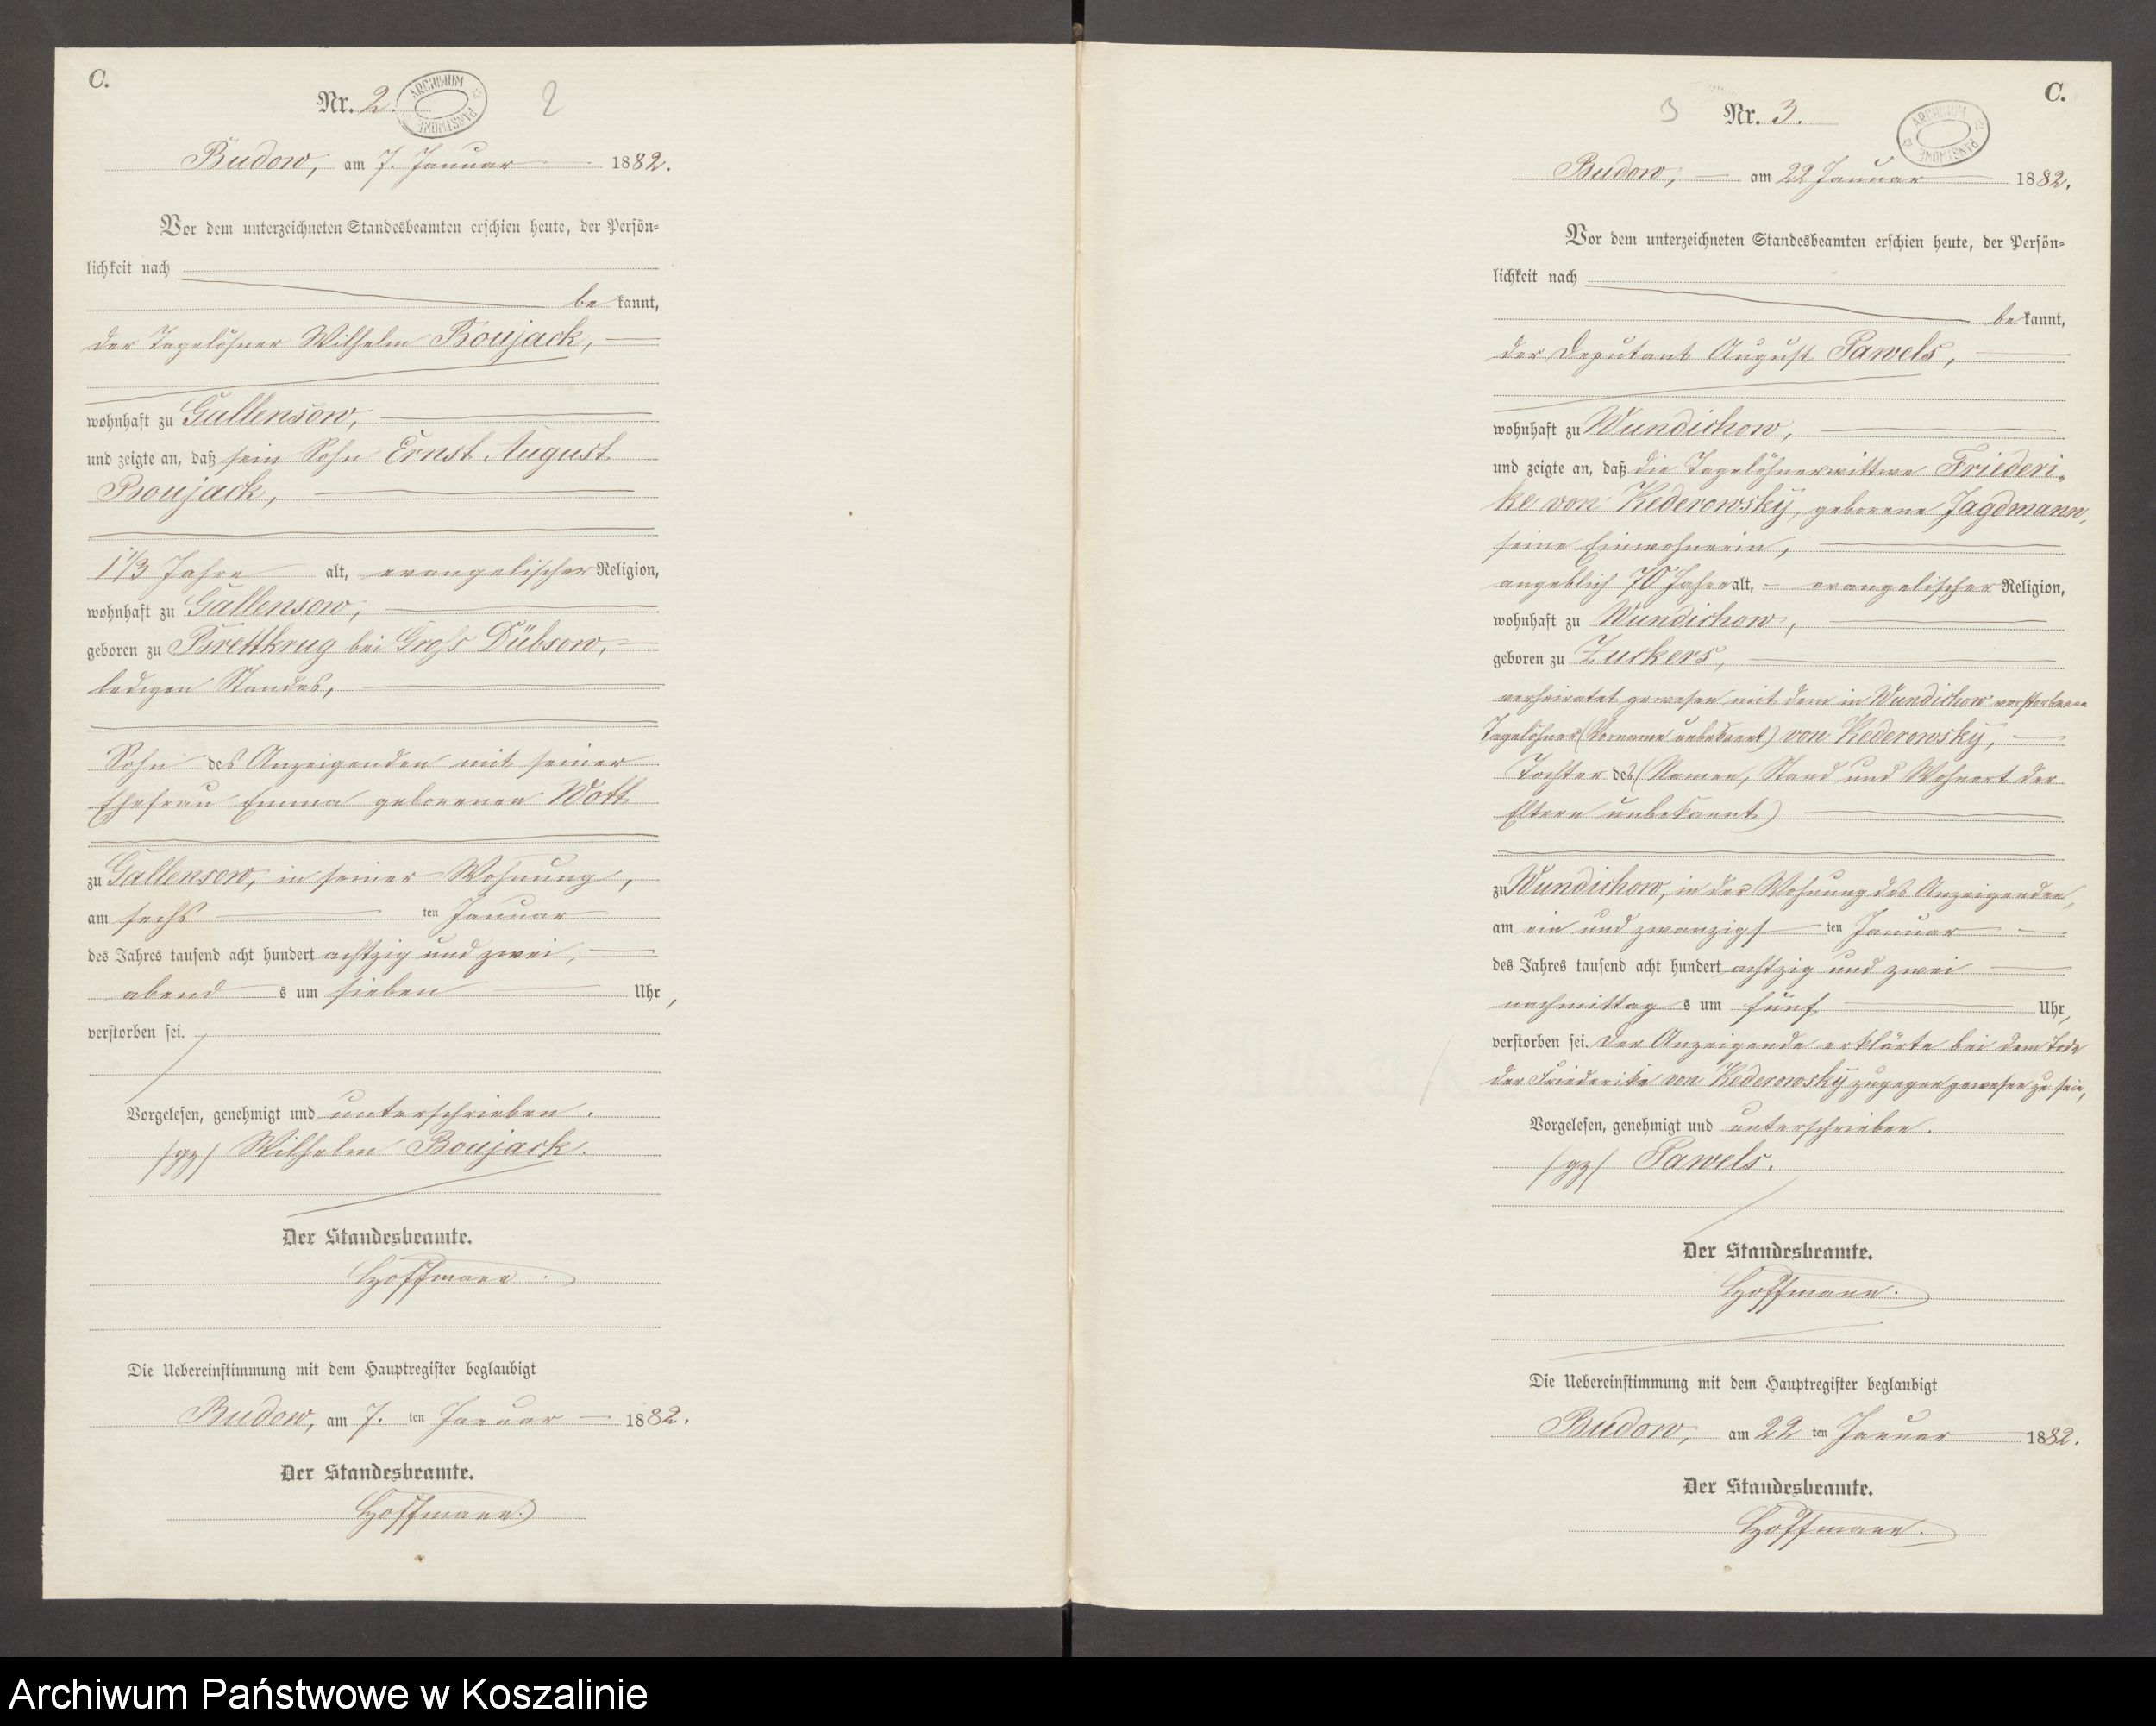 C.
Nr. 2.
ARCHIWUM PAŃSTWOWE
2
Budow, am 7. Januar 1882.
Vor dem unterzeichneten Standesbeamten erschien heute, der Persön-
lichkeit nach
be kannt,
der Tagelöhner Wilhelm Boujack,
wohnhaft zu Gallensow,
und zeigte an, daß sein Sohn Ernst August
Boujack,
1 1/3 Jahre alt, evangelischer Religion,
wohnhaft zu Gallensow,
geboren zu Brettkrug bei Groß Dübsow,
ledigen Standes,
Sohn des Anzeigenden mit seiner
Ehefrau Emma geborenen Wott
zu Gallensow, in seiner Wohnung,
am sechs ten Januar
des Jahres tausend acht hundert achtzig und zwei,
abend s um sieben Uhr,
verstorben sei.
Vorgelesen, genehmigt und unterschrieben.
/gz/ Wilhelm Boujack.
Der Standesbeamte.
Hoffmann.
Die Uebereinstimmung mit dem Hauptregister beglaubigt
Budow, am 7. ten Januar 1882.
Der Standesbeamte.
Hoffmann.
C.
3
Nr. 3.
ARCHIWUM PAŃSTWOWE
Budow, am 22 Januar 1882.
Vor dem unterzeichneten Standesbeamten erschien heute, der Persön-
lichkeit nach
be kannt,
der Deputant August Pawels,
wohnhaft zu Wundichow,
und zeigte an, daß die Tagelöhnerwittwe Friederi-
ke von Kederowsky, geborene Jagdmann,
seine Einwohnerin,
angeblich 70 Jahre alt, evangelischer Religion,
wohnhaft zu Wundichow,
geboren zu Zuckers,
verheiratet gewesen mit dem in Wundichow verstorbenen
Tagelöhner (Vorname unbekannt) von Kederowsky,
Tochter des (Namen, Stand und Wohnort der
Eltern unbekannt)
zu Wundichow, in der Wohnung des Anzeigenden,
am ein und zwanzigs ten Januar
des Jahres tausend acht hundert achtzig und zwei
nachmittag s um fünf Uhr,
verstorben sei. Der Anzeigende erklärte bei dem Tode
der Friederike von Kederowsky zugegen gewesen zu sein,
Vorgelesen, genehmigt und unterschrieben.
/gz/ Pawels.
Der Standesbeamte.
Hoffmann.
Die Uebereinstimmung mit dem Hauptregister beglaubigt
Budow, am 22 ten Januar 1882.
Der Standesbeamte.
Hoffmann.
Archiwum Państwowe w Koszalinie